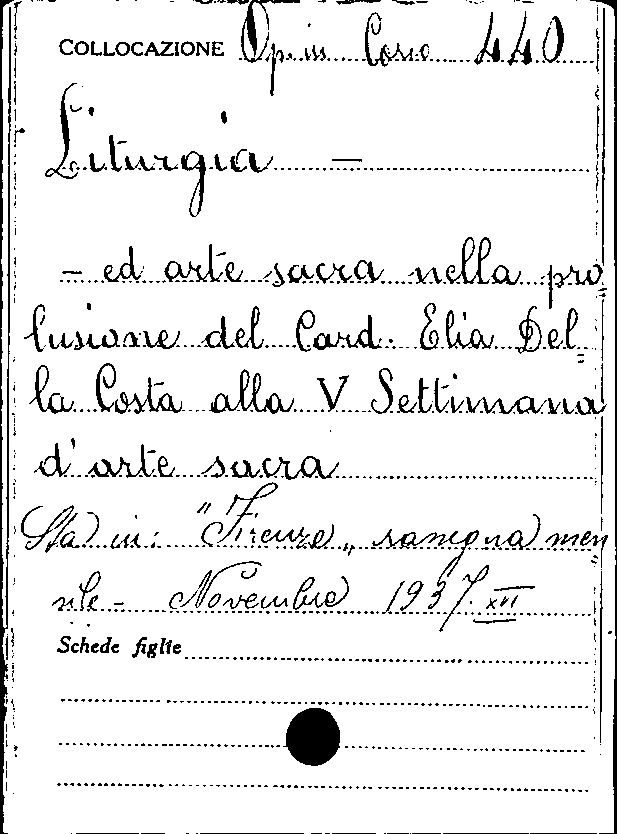 COLLOCAZIONE Op. in Corso 440
Liturgia —
- ed arte sacra nella pro=
lusione del Card. Elia Del=
la Costa alla V Settimana
d'arte sacra
Sta in: "Firenze„ rassegna men=
sile - Novembre 1937. XVI
Schede figlie